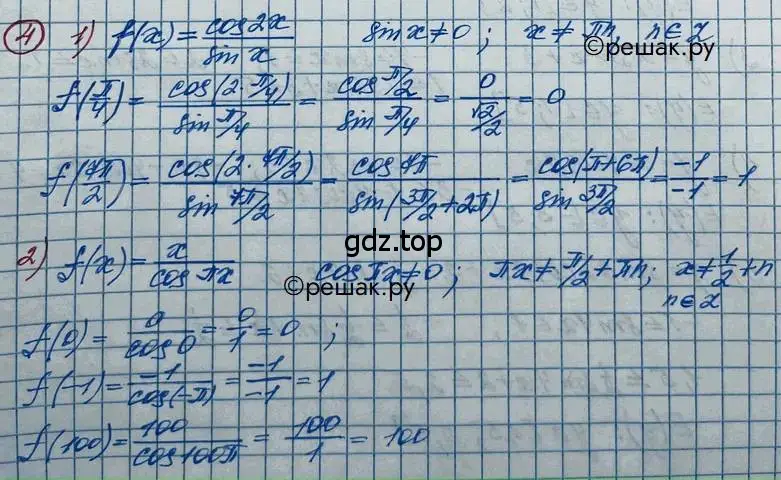 4 1) f(x) = cos2x / sin x   sin x ≠ 0 ; x ≠ πn, n ∈ Z
©решак.ру
f(π/4) = cos(2·π/4) / sin π/4 = cos π/2 / sin π/4 = 0 / (√2/2) = 0
f(7π/2) = cos(2·7π/2) / sin 7π/2 = cos 7π / sin(3π/2 + 2π) = cos(π+6π) / sin 3π/2 = -1 / -1 = 1
gdz.top
2) f(x) = x / cos πx   cos πx ≠ 0 ; πx ≠ π/2 + πn ; x ≠ 1/2 + n
©решак.ру
n ∈ Z
f(0) = 0 / cos 0 = 0 / 1 = 0 ;
f(-1) = -1 / cos(-π) = -1 / -1 = 1
f(100) = 100 / cos 100π = 100 / 1 = 100